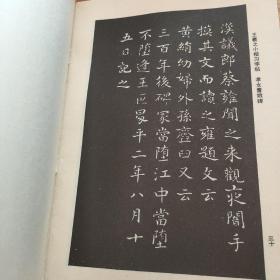 王羲之小楷习字帖 孝女曹娥碑
漢議郎蔡雝聞之来觀夜闇手
摸其文而讀之雍題文云
黄絹幼婦外孫齏臼又云
三百年後碑冢當墮江中當墮
不墮逢王叵昇平二年八月十
五日記之
三十